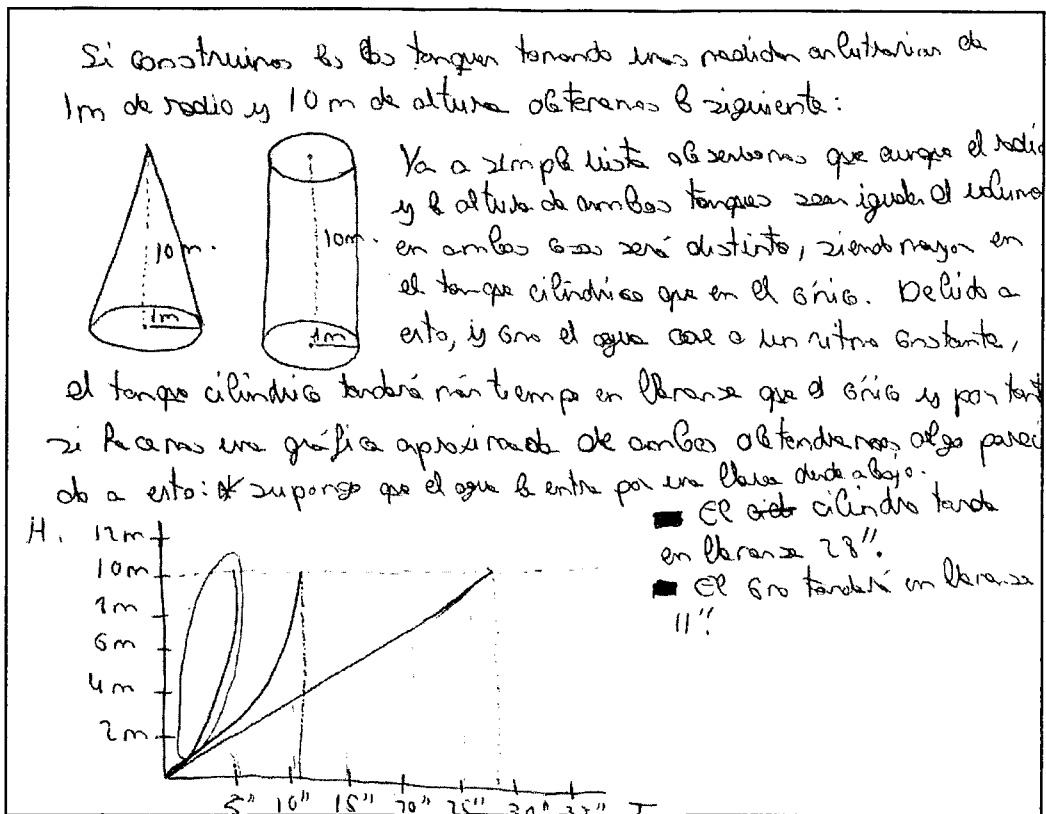 Si construimos los dos tanques tomando unas medidas arbitrarias de
1m de radio y 10 m de altura obtenemos lo siguiente:
10 m.
1m
10m.
1m
Ya a simple vista observamos que aunque el radio
y la altura de ambos tanques sean iguales el volumen
en ambos casos será distinto, siendo mayor en
el tanque cilíndrico que en el cónico. Debido a
esto, y como el agua cae a un ritmo constante,
el tanque cilíndrico tardará más tiempo en llenarse que el cónico y por tant
si hacemos una gráfica aproximada de ambos obtendremos algo pareci
do a esto: * supongo que el agua entra por una llave desde abajo.
El cilindro tarda
en llenarse 28".
El cono tardará en llenarse
11".
H.
12m
10m
6m
4m
2m
5" 10" 15" 20" 25" 30" 35" T